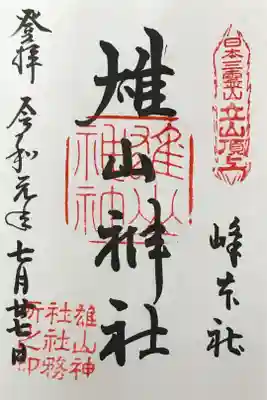 日本三霊山
立山頂上
峰本社
雄山神社
雄山神社
登拝
令和元年七月廿七日
雄山神
社社務
所之印